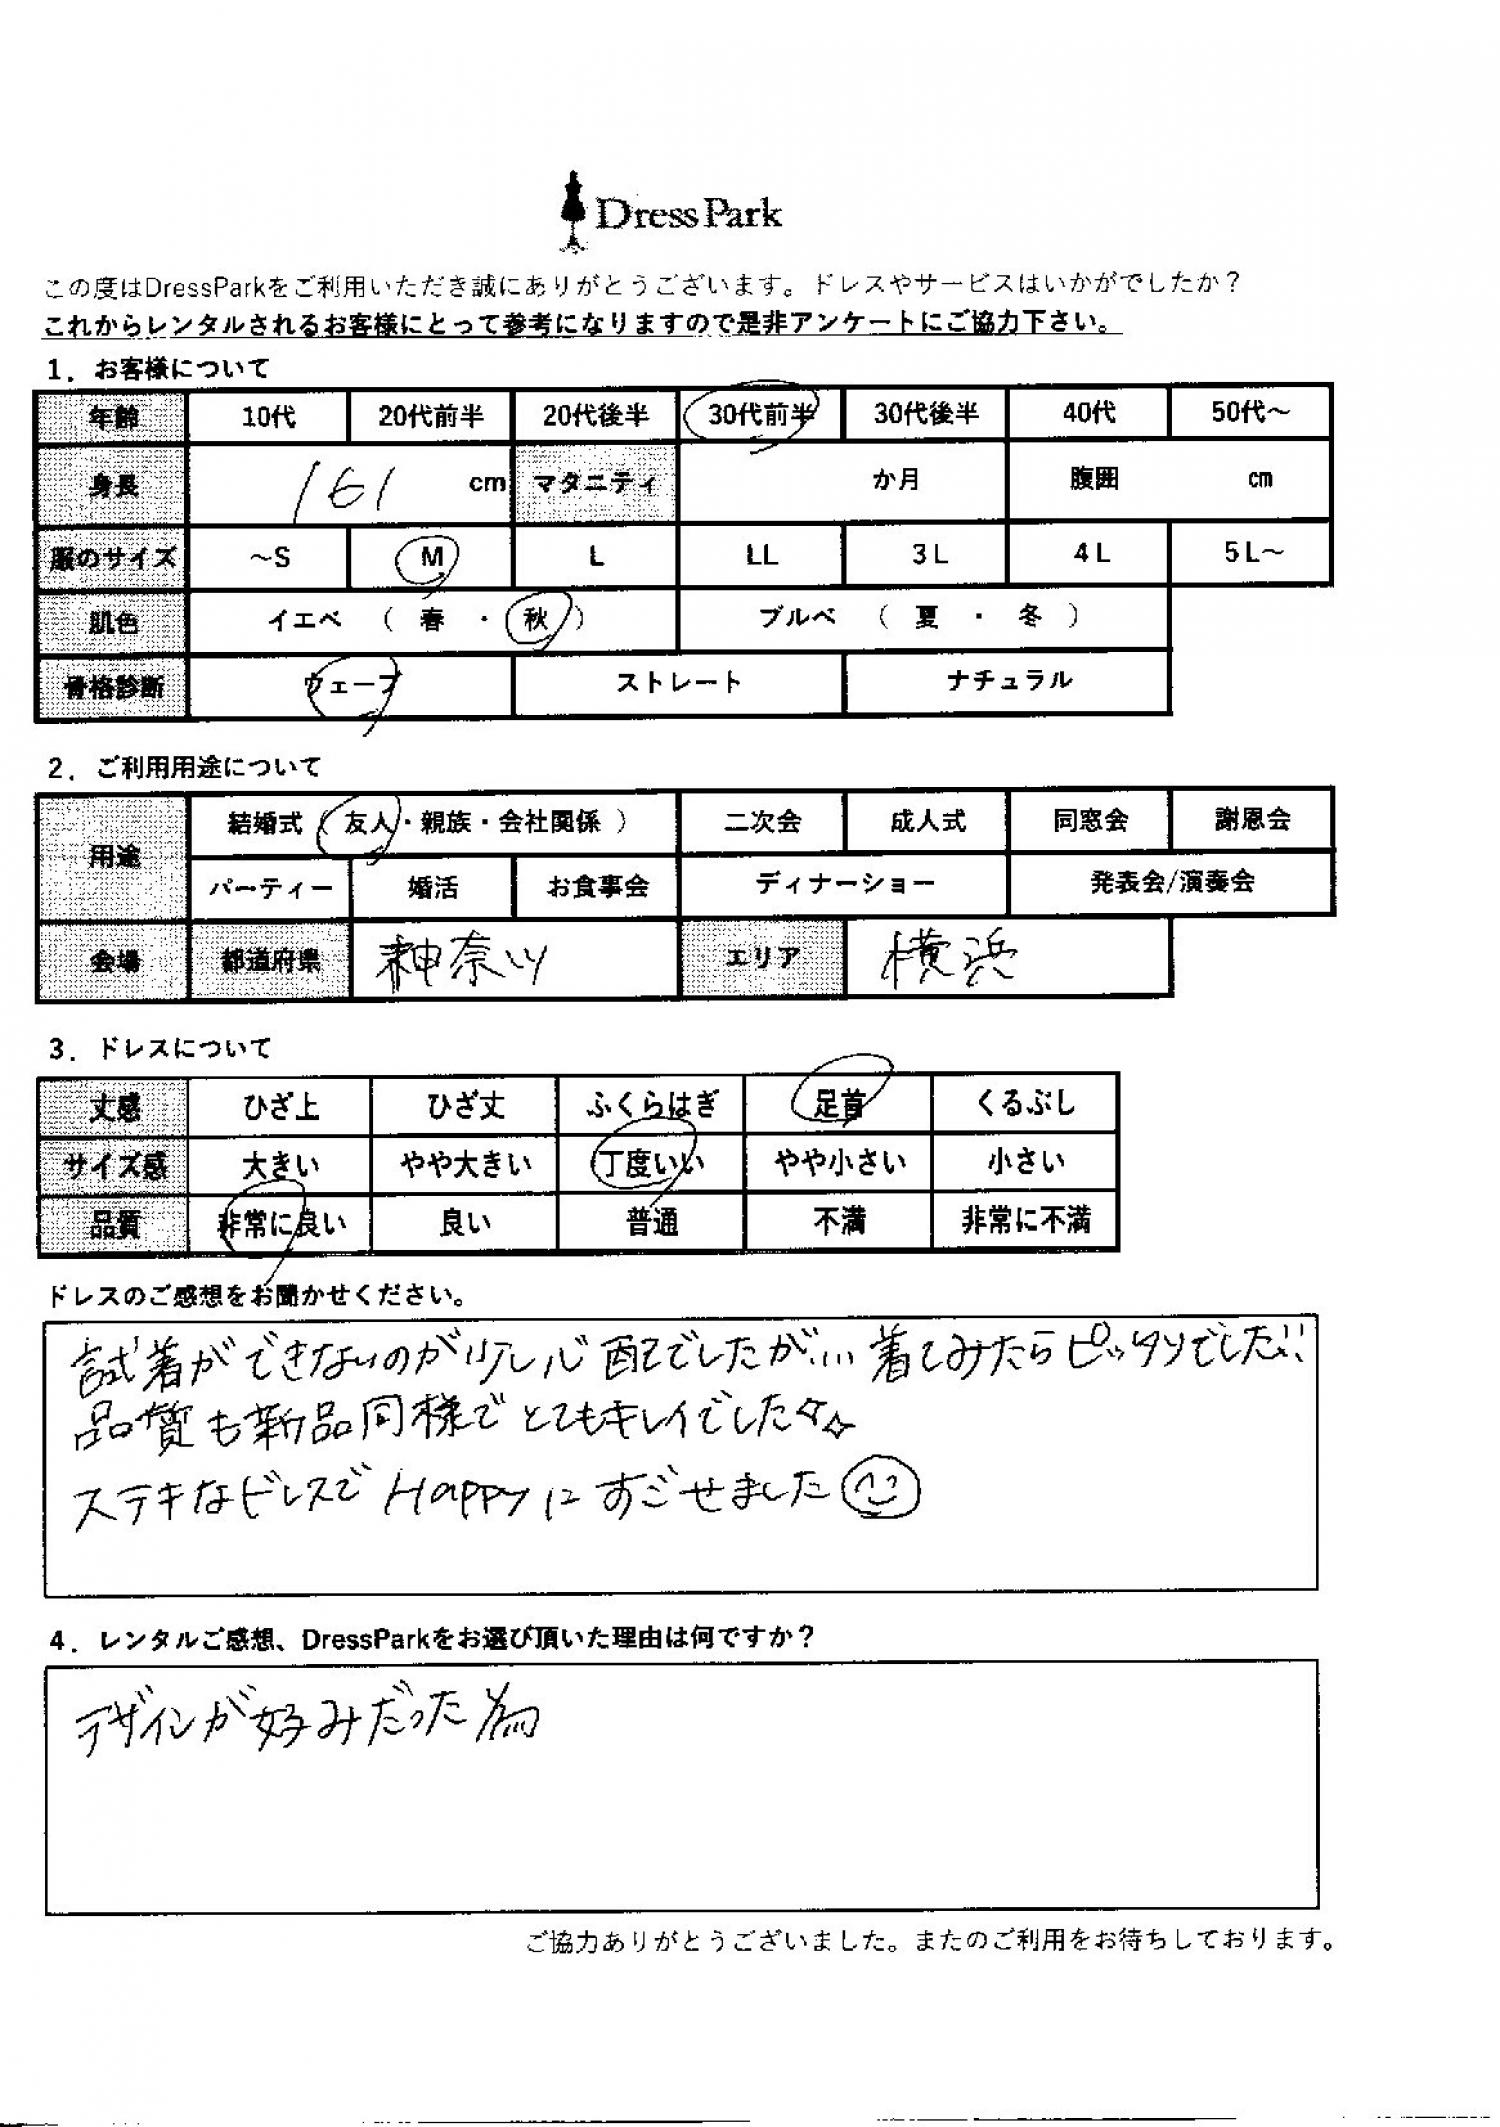 DressPark
この度はDressParkをご利用いただき誠にありがとうございます。ドレスやサービスはいかがでしたか？
これからレンタルされるお客様にとって参考になりますので是非アンケートにご協力下さい。
1．お客様について
年齢 10代 20代前半 20代後半 30代前半 30代後半 40代 50代～
身長 161 cm マタニティ か月 腹囲 cm
服のサイズ ～S M L LL 3L 4L 5L～
肌色 イエベ （ 春 ・ 秋 ） ブルベ （ 夏 ・ 冬 ）
骨格診断 ウェーブ ストレート ナチュラル
2．ご利用用途について
用途 結婚式（ 友人・親族・会社関係 ） 二次会 成人式 同窓会 謝恩会
パーティー 婚活 お食事会 ディナーショー 発表会/演奏会
会場 都道府県 神奈川 エリア 横浜
3．ドレスについて
丈感 ひざ上 ひざ丈 ふくらはぎ 足首 くるぶし
サイズ感 大きい やや大きい 丁度いい やや小さい 小さい
品質 非常に良い 良い 普通 不満 非常に不満
ドレスのご感想をお聞かせください。
試着ができないのが少し心配でしたが… 着てみたらピッタリでした!!
品質も新品同様でとてもキレイでした☆☆
ステキなドレスで Happyにすごせました☺
4．レンタルご感想、DressParkをお選び頂いた理由は何ですか？
デザインが好みだった為
ご協力ありがとうございました。またのご利用をお待ちしております。